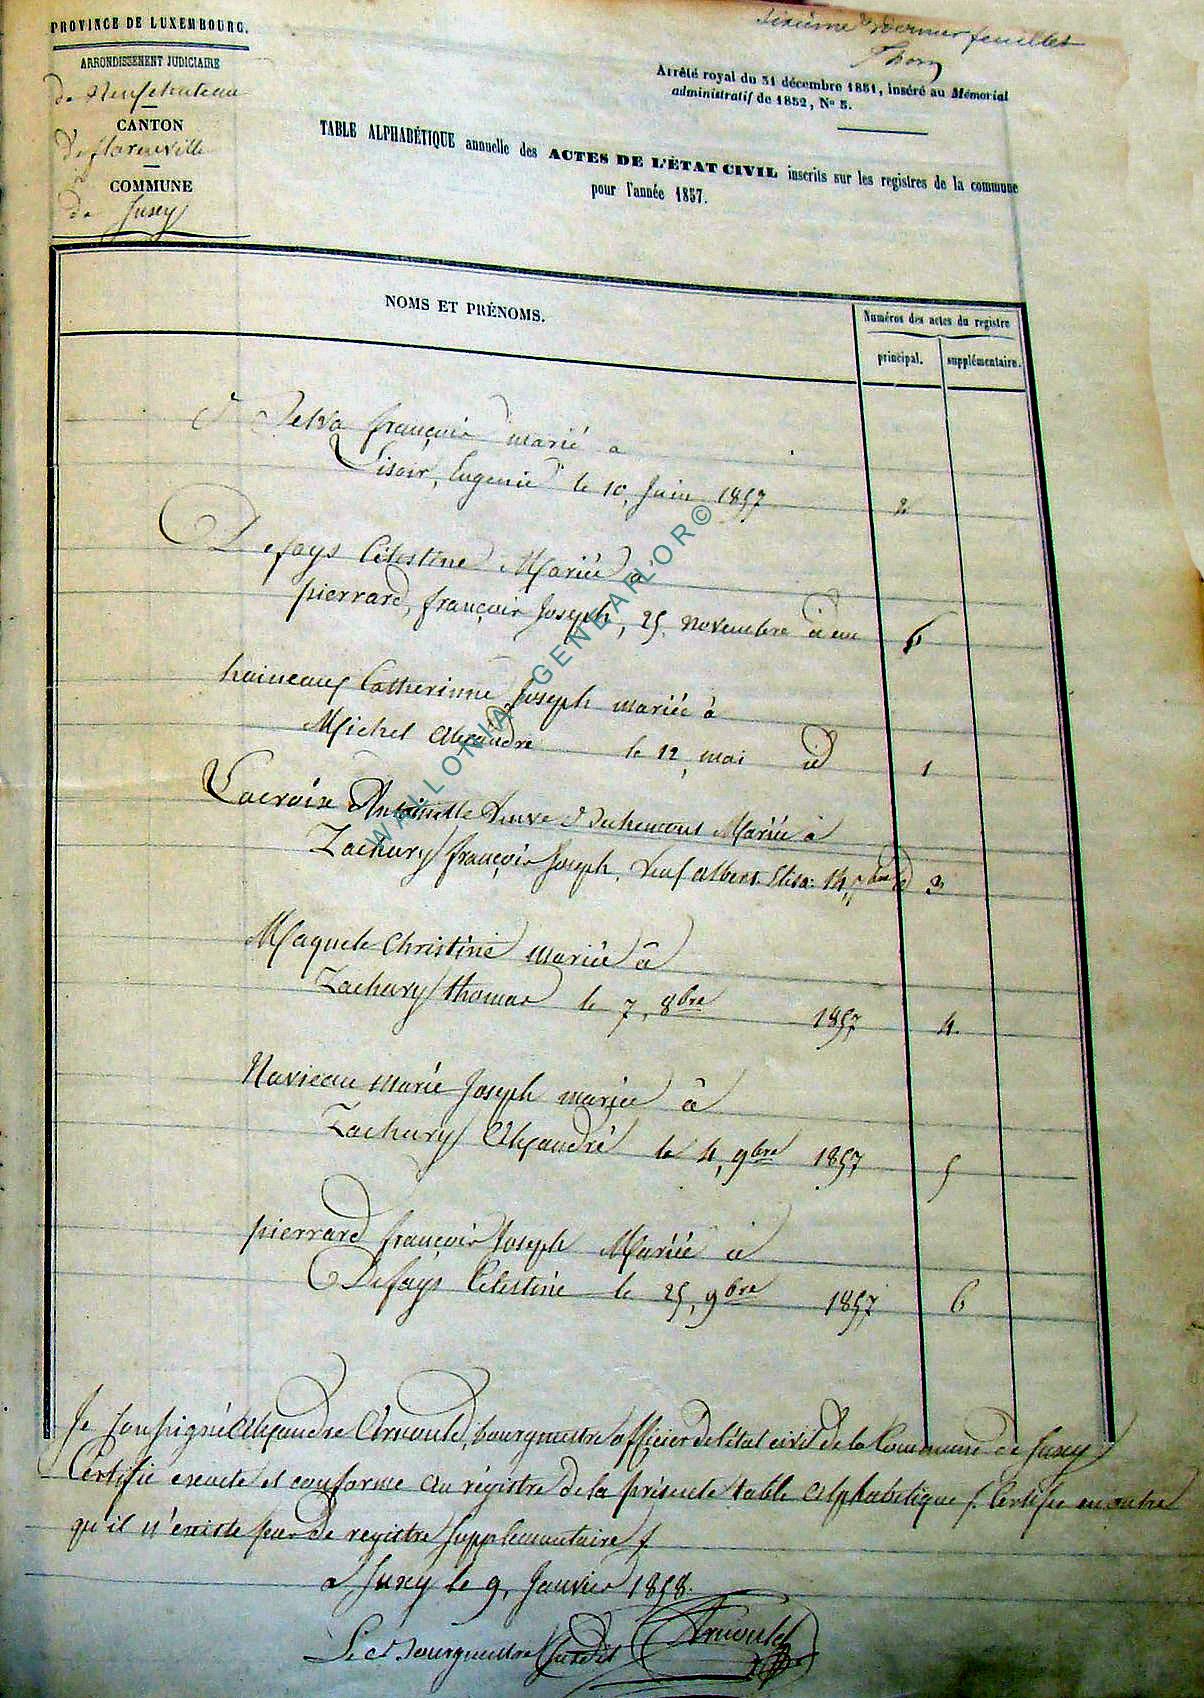 PROVINCE DE LUXEMBOURG.
ARRONDISSEMENT JUDICIAIRE
de Neufchateau
CANTON
de florenville
COMMUNE
de Jusey
Sixième & dernier feuillet
Thorn
Arrêté royal du 31 décembre 1851, inséré au Mémorial
administratif de 1852, N° 5.
TABLE ALPHABÉTIQUE annuelle des ACTES DE L'ÉTAT CIVIL inscrits sur les registres de la commune
pour l'année 1857.
NOMS ET PRÉNOMS.
Numéros des actes du registre
principal.
supplémentaire.
Delva françois marié a
Lisoir, Eugenie le 10, Juin 1857 2
Defays Célestine Mariée a
pierrard, françois Joseph, 25 novembre 6
haineaux Catherinne Joseph mariée à
Michel Alexandre le 12, mai id 1
Lacroix Antoinette Veuve Mariée à
Zachary françois Joseph, Veuf albert Elisa: 14, 7bre id 3
Maquete Christine mariée à
Zachary thomas le 7, 8bre 1857 4
Naviceau Marie Joseph mariée à
Zachary Alexandre le 4, 9bre 1857 5
pierrard françois Joseph Mariée à
Defays Célestine le 25, 9bre 1857 6
Je soussigné Alexandre Arnould, bourgmestre officier de l'état civil de la Commune de Jusey
Certifie exacte et conforme au régistre de la présente table alphabetique /. Certifie en outre
qu'il n'existe pas de registre Supplementaire /.
a Jusey le 9, Janvier 1858.
Le Bourgmestre Susdit
Arnould
WALLONIA GENEARLOR©